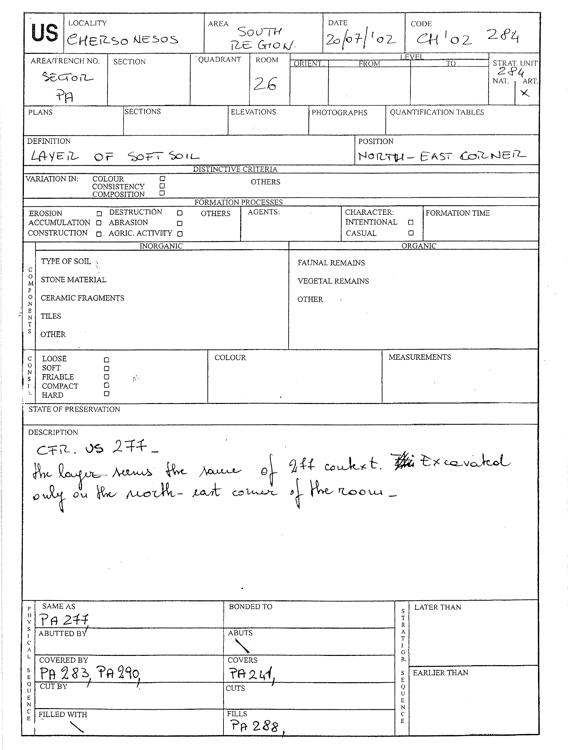 US
LOCALITY
CHERSONESOS
AREA
SOUTH
REGION
DATE
20/07/'02
CODE
CH'02 284
AREA/TRENCH NO.
SECTOR
PA
SECTION
QUADRANT
ROOM
26
LEVEL
ORIENT. FROM TO
STRAT. UNIT
284
NAT. ART.
X
PLANS
SECTIONS
ELEVATIONS
PHOTOGRAPHS
QUANTIFICATION TABLES
DEFINITION
LAYER OF SOFT SOIL
POSITION
NORTH-EAST CORNER
DISTINCTIVE CRITERIA
VARIATION IN: COLOUR
CONSISTENCY
COMPOSITION
OTHERS
FORMATION PROCESSES
EROSION DESTRUCTION OTHERS
ACCUMULATION ABRASION
CONSTRUCTION AGRIC. ACTIVITY
AGENTS:
CHARACTER:
INTENTIONAL
CASUAL
FORMATION TIME
COMPONENTS
INORGANIC
TYPE OF SOIL
STONE MATERIAL
CERAMIC FRAGMENTS
TILES
OTHER
ORGANIC
FAUNAL REMAINS
VEGETAL REMAINS
OTHER
CONSI.
LOOSE
SOFT
FRIABLE
COMPACT
HARD
COLOUR
MEASUREMENTS
STATE OF PRESERVATION
DESCRIPTION
CFR. US 277_
the layer seems the same of 277 context. Excavated
only on the north-east corner of the room_
PHYSICAL SEQUENCE
SAME AS
PA 277,
BONDED TO
ABUTTED BY
ABUTS
\
COVERED BY
PA 283, PA 290,
COVERS
PA 241,
CUT BY
CUTS
FILLED WITH
\
FILLS
PA 288,
STRATIGR. SEQUENCE
LATER THAN
EARLIER THAN